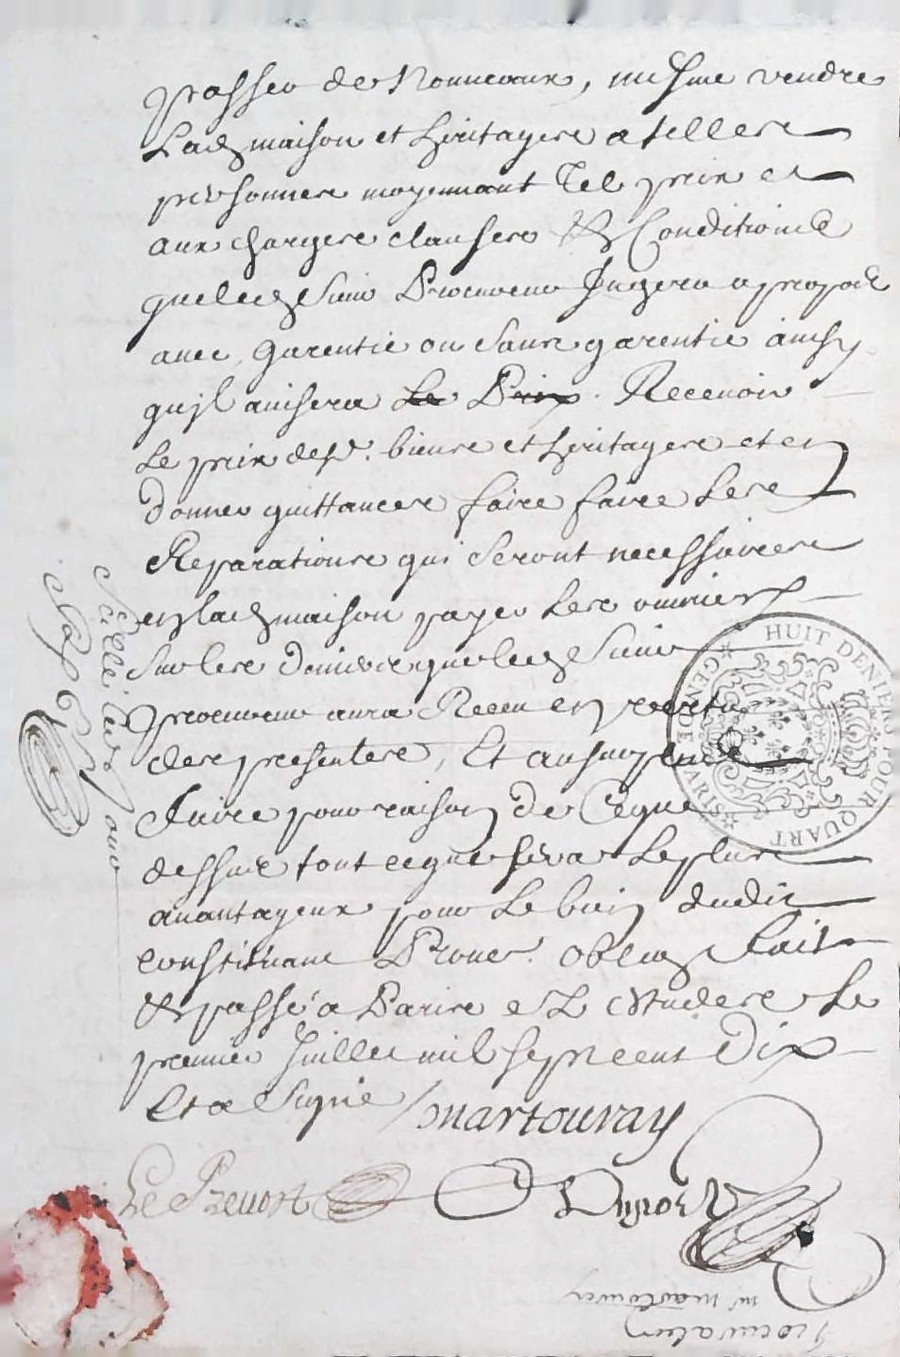 passer de Nouveaux, mesme vendre
Lad maison et heritages a telles
personnes moyennant Tel prix et
aux charges clauses & Conditions
que led Sieur Procureur Jugera a propos
avec garentie ou Sans garentie ainsy
qujl avisera Le Prix. Recevoir
Le prix desd. biens et heritages et en
Donner quittances faire faire Les
Reparations qui Seront necessaires
en lad maison payer Les ouvriers
Sur les deniers que led Sieur
procureur aura Receu en vertu
des presentes, Et au surplus
faire pour raison de Ce que
dessus tout ce que sera Le plus
avantageux pour Le bien dudit
constituant Promet. oblig fait
& passé a Paris es Etudes Le
premier Juillet mil sept cent Dix
Et a Signé / martouray
Le Prevost Dupont
Scellé led jour
HUIT DENIERS POUR QUART
GEN DE PARIS
procuration
mr martouray